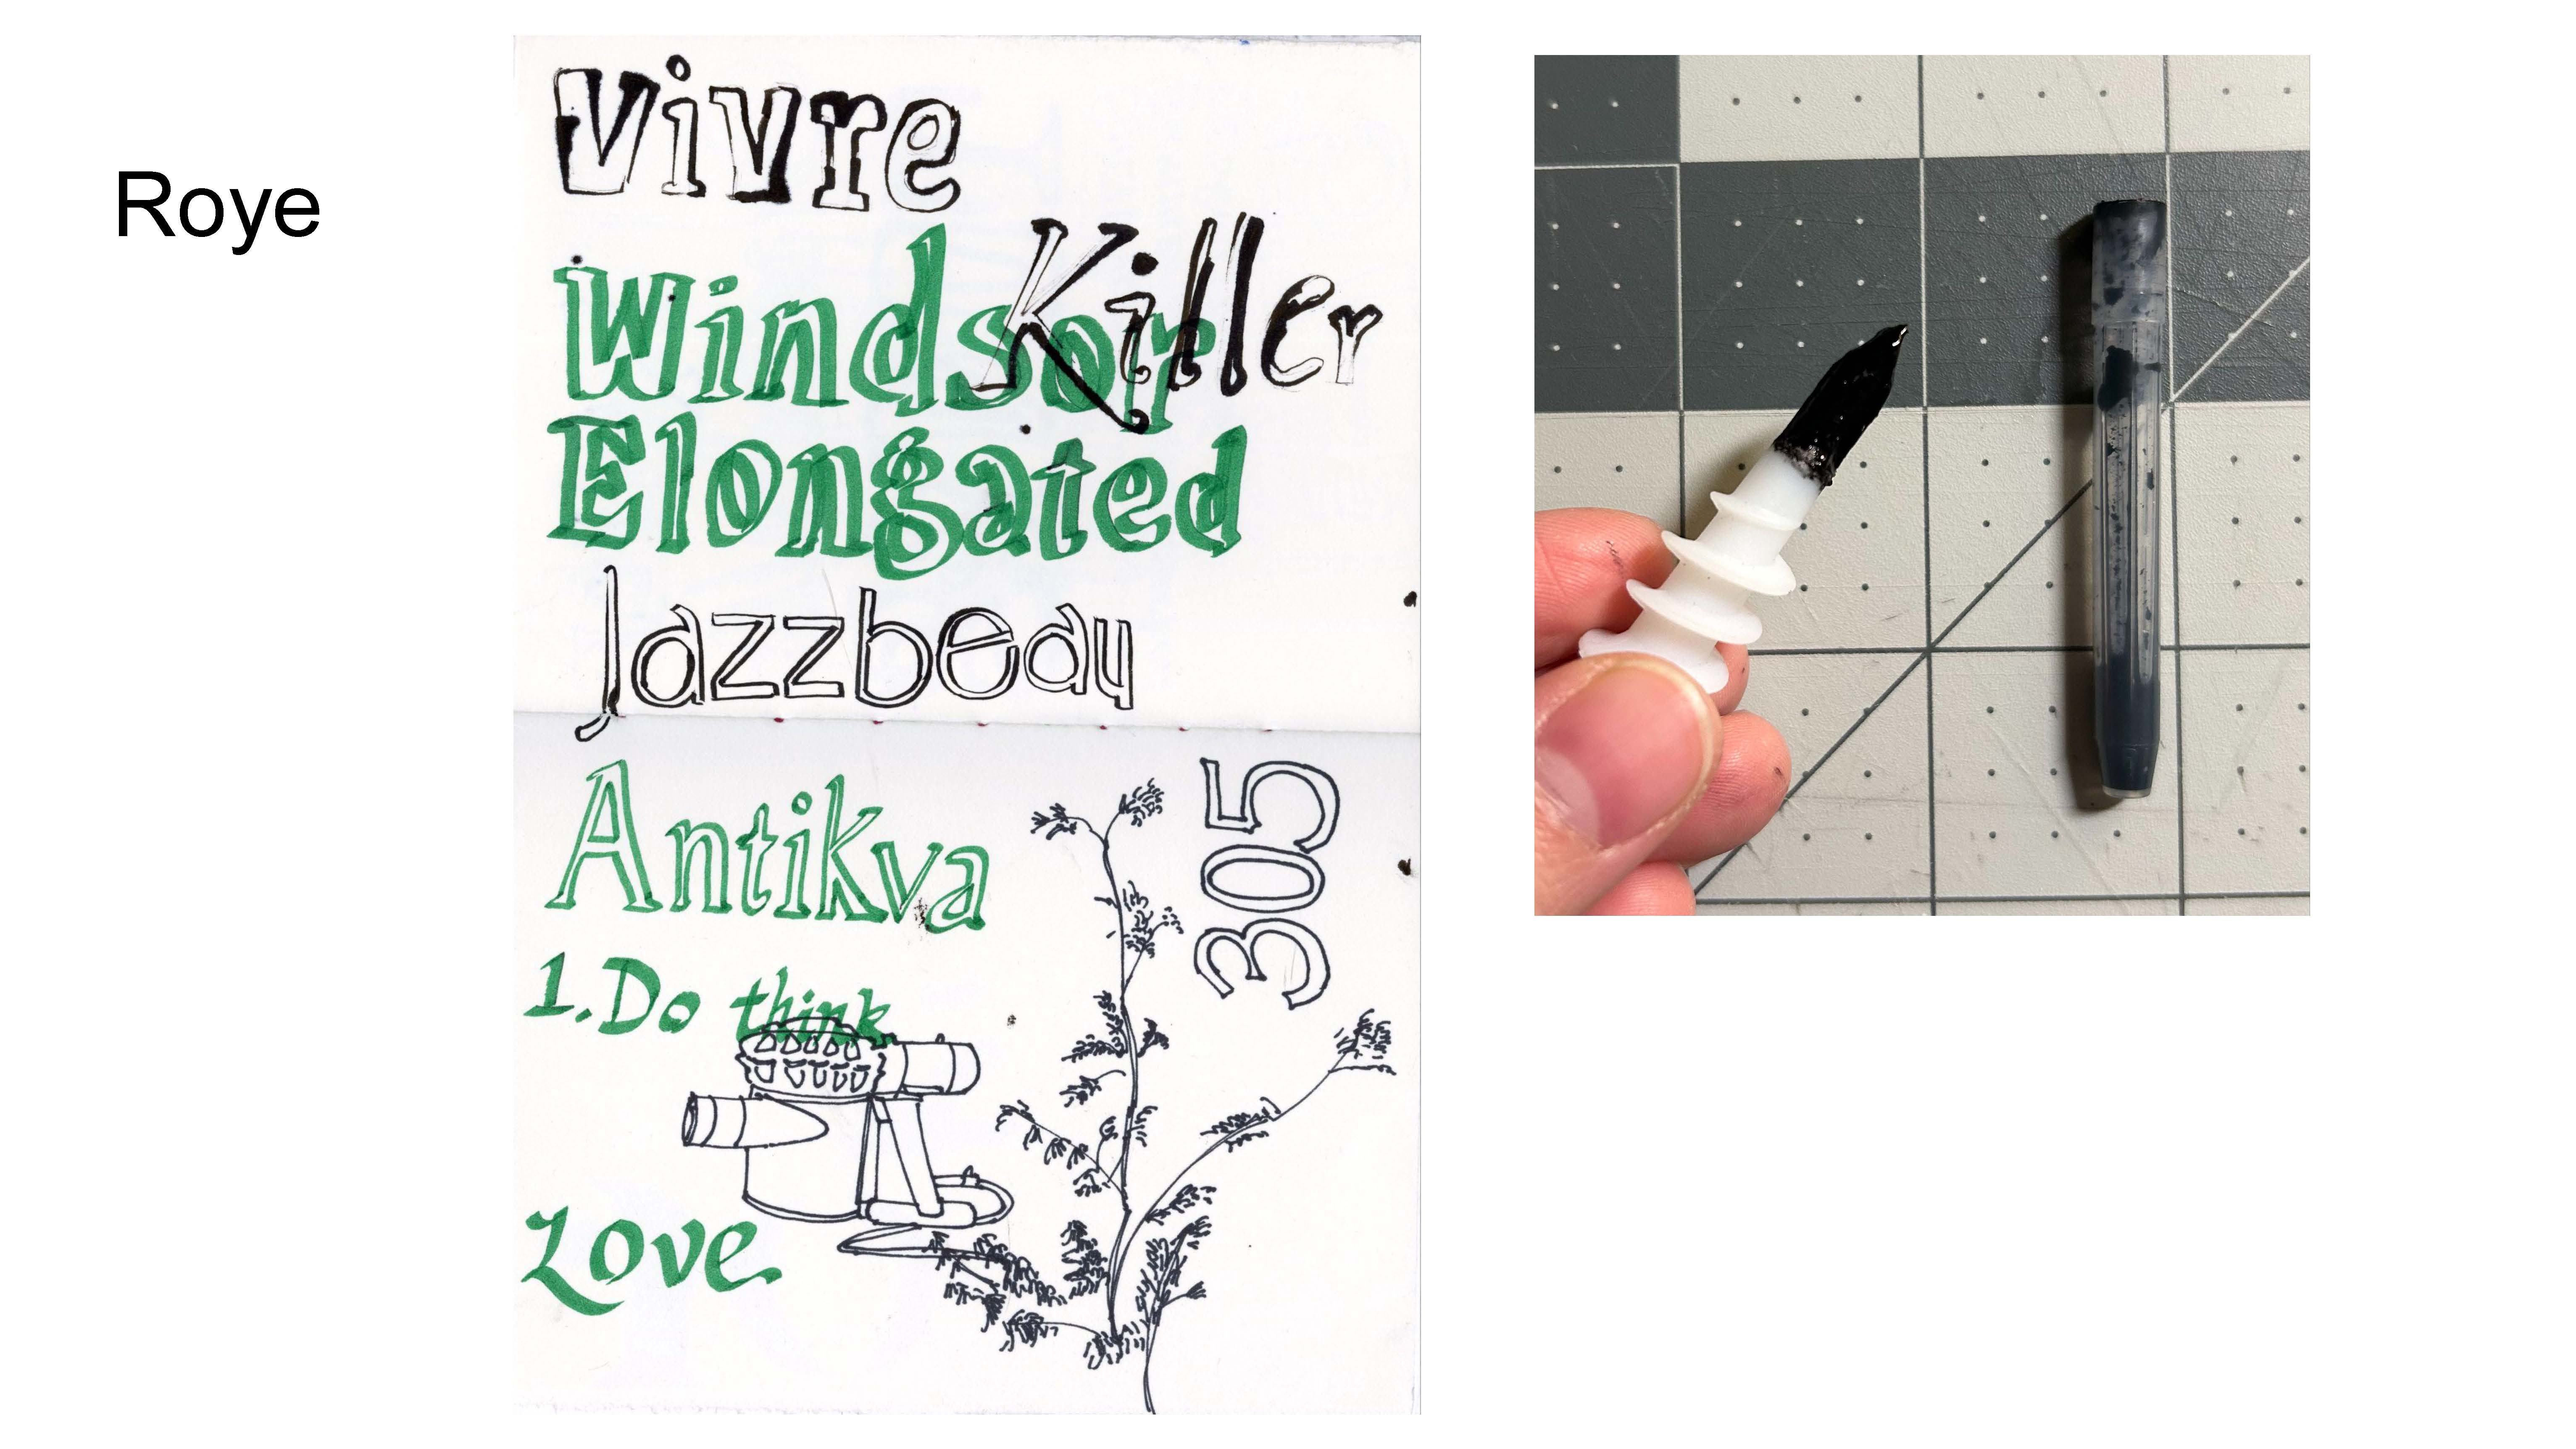 Roye
Vivre
Killer
Windsor
Elongated
Jazzbeau
Antikva
305
1. Do think
Love